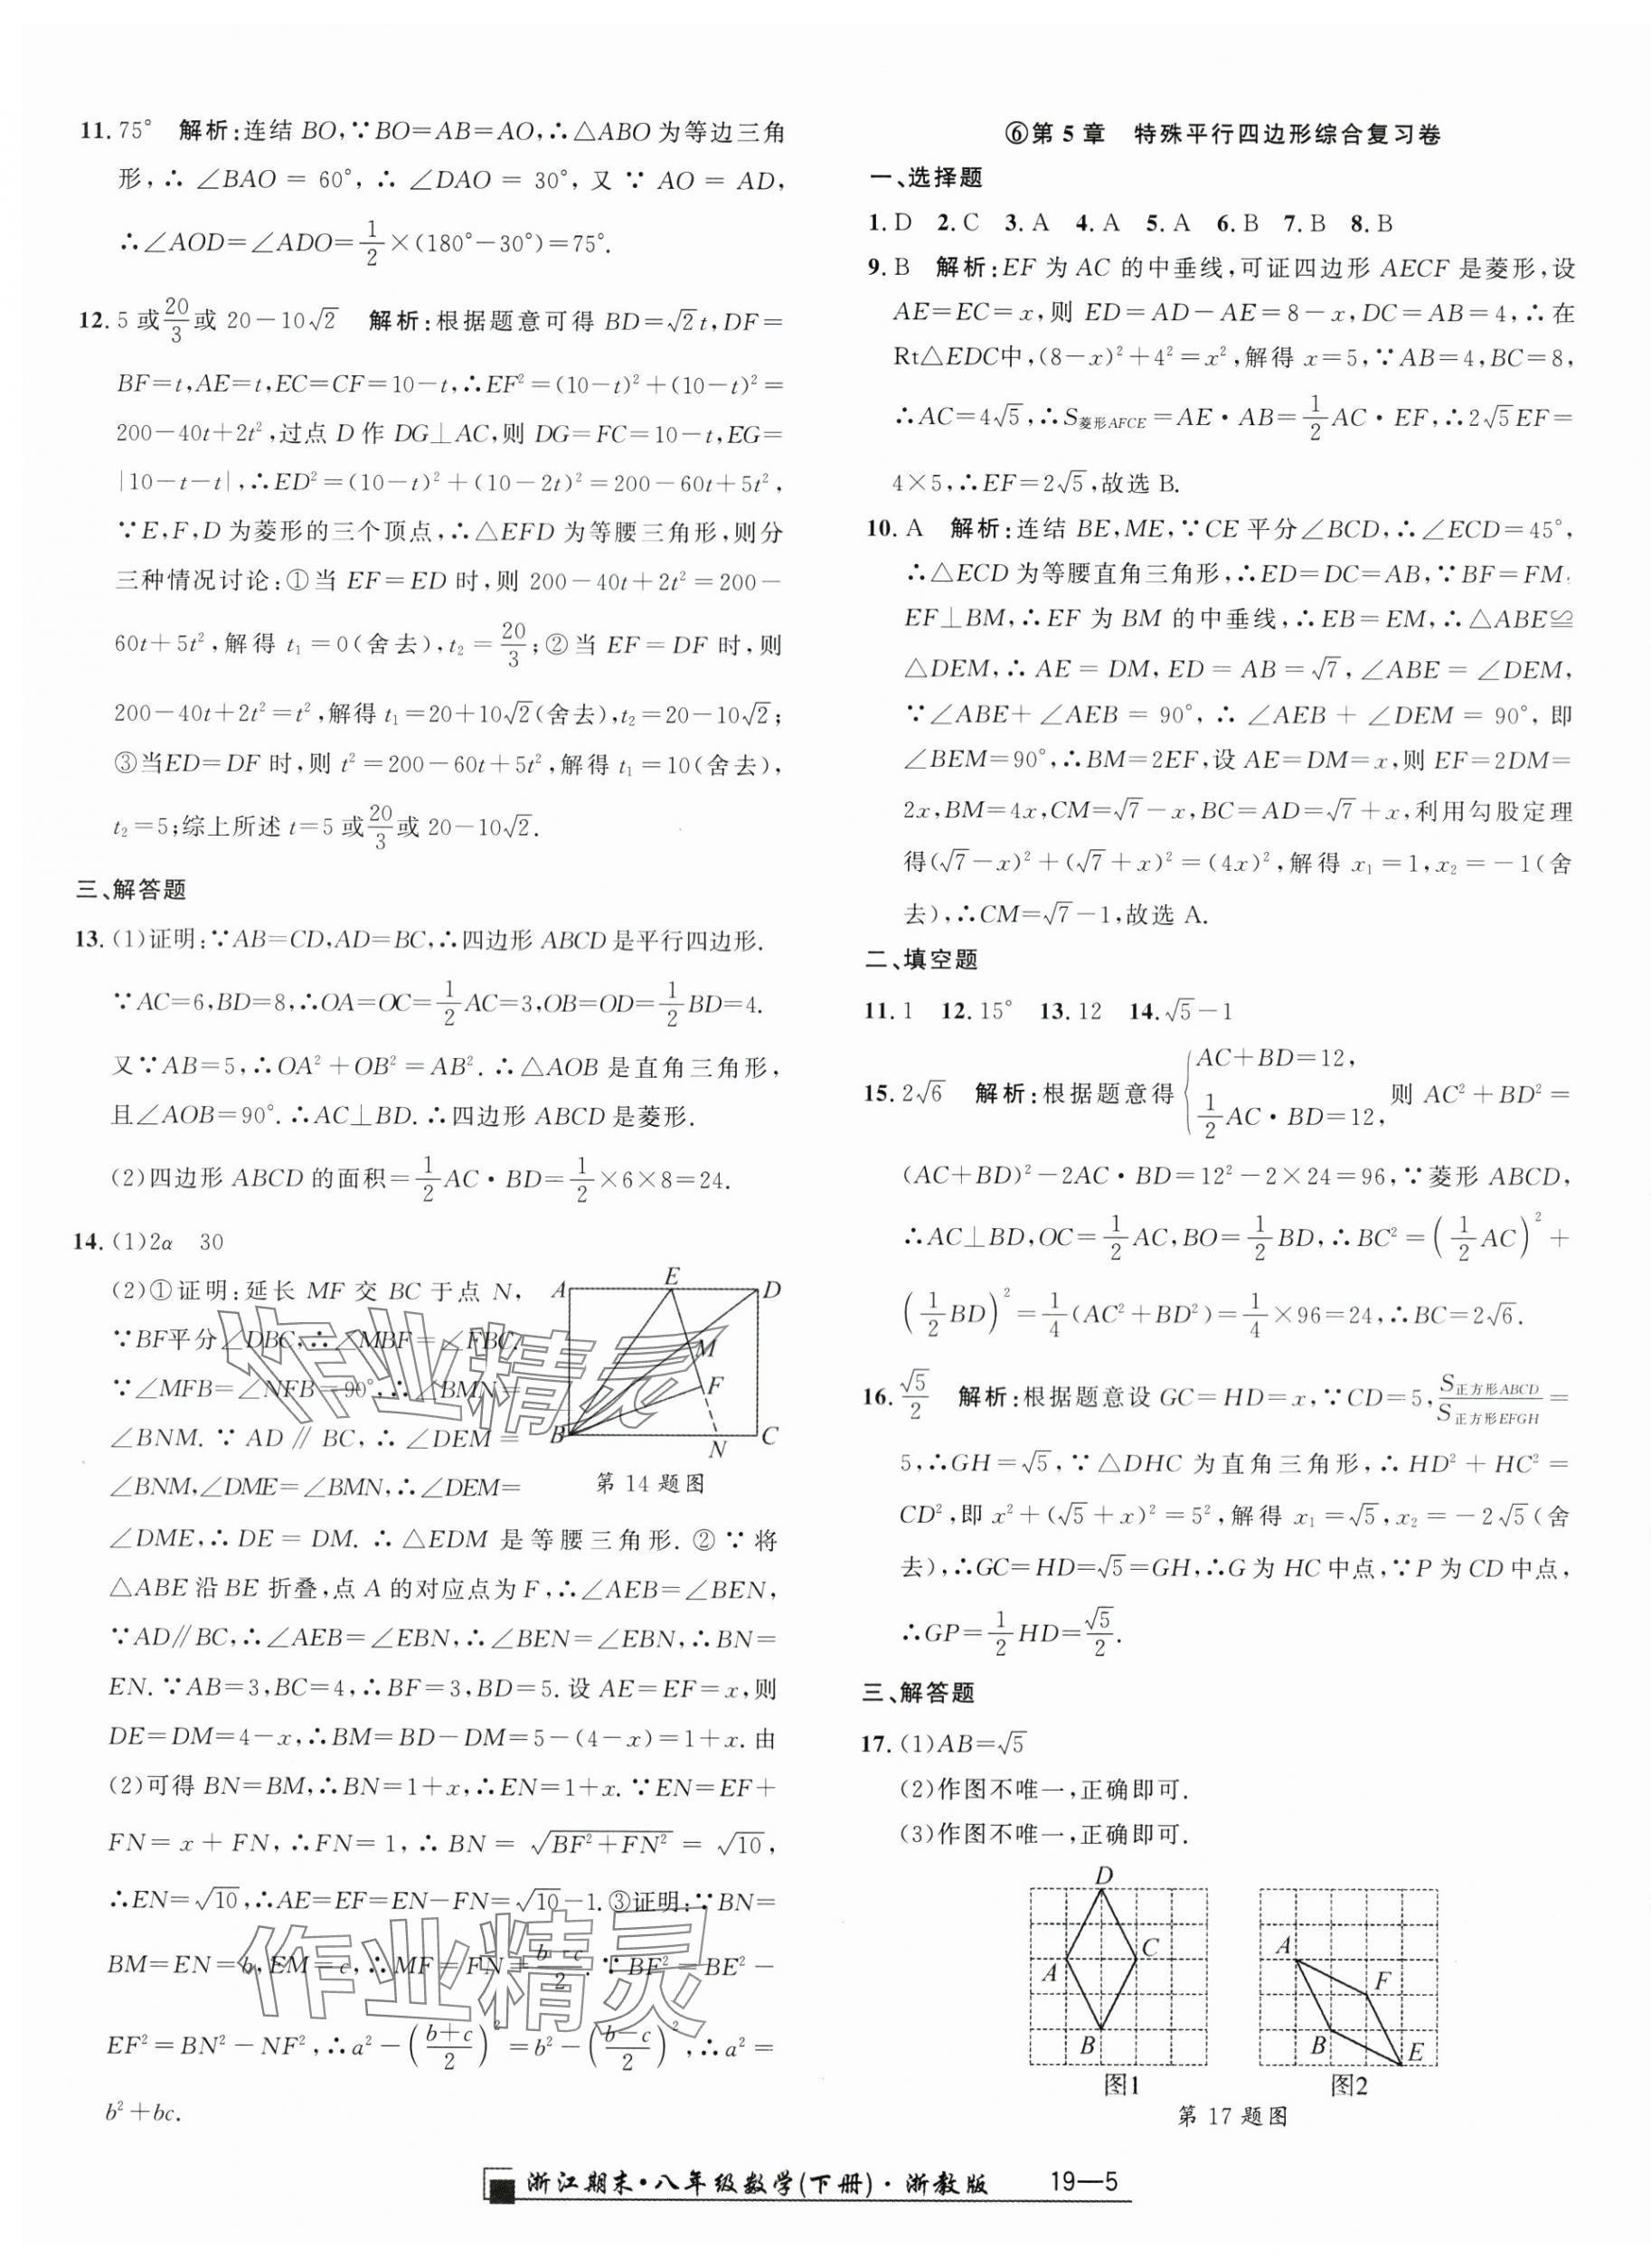 11. 75° 解析:连结 BO,∵BO=AB=AO,∴△ABO 为等边三角
形,∴ ∠BAO = 60°, ∴ ∠DAO = 30°, 又 ∵ AO = AD,
∴∠AOD=∠ADO=1/2×(180°-30°)=75°.
12. 5 或20/3或 20-10√2 解析:根据题意可得 BD=√2t,DF=
BF=t,AE=t,EC=CF=10-t,∴EF²=(10-t)²+(10-t)²=
200-40t+2t²,过点 D 作 DG⊥AC,则 DG=FC=10-t,EG=
|10-t-t|,∴ED²=(10-t)²+(10-2t)²=200-60t+5t²,
∵E,F,D 为菱形的三个顶点,∴△EFD 为等腰三角形,则分
三种情况讨论:①当 EF=ED 时,则 200-40t+2t²=200-
60t+5t²,解得 t₁=0(舍去),t₂=20/3;②当 EF=DF 时,则
200-40t+2t²=t²,解得 t₁=20+10√2(舍去),t₂=20-10√2;
③当ED=DF 时,则 t²=200-60t+5t²,解得 t₁=10(舍去),
t₂=5;综上所述 t=5 或20/3或 20-10√2.
三、解答题
13. (1)证明:∵AB=CD,AD=BC,∴四边形 ABCD 是平行四边形.
∵AC=6,BD=8,∴OA=OC=1/2AC=3,OB=OD=1/2BD=4.
又∵AB=5,∴OA²+OB²=AB². ∴△AOB 是直角三角形,
且∠AOB=90°. ∴AC⊥BD. ∴四边形 ABCD 是菱形.
(2)四边形 ABCD 的面积=1/2AC·BD=1/2×6×8=24.
14. (1)2α 30
(2)①证明:延长 MF 交 BC 于点 N,
∵BF平分∠DBC,∴∠MBF=∠FBC.
∵∠MFB=∠NFB=90°,∴∠BMN=
∠BNM. ∵ AD∥BC, ∴ ∠DEM =
∠BNM,∠DME=∠BMN,∴∠DEM=
A E D
M
F
B N C
第 14 题图
∠DME,∴ DE = DM. ∴ △EDM 是等腰三角形. ② ∵ 将
△ABE 沿 BE 折叠,点 A 的对应点为 F,∴∠AEB=∠BEN,
∵AD∥BC,∴∠AEB=∠EBN,∴∠BEN=∠EBN,∴BN=
EN. ∵AB=3,BC=4,∴BF=3,BD=5. 设 AE=EF=x,则
DE=DM=4-x,∴BM=BD-DM=5-(4-x)=1+x. 由
(2)可得 BN=BM,∴BN=1+x,∴EN=1+x. ∵EN=EF+
FN= x + FN, ∴FN= 1, ∴ BN = √(BF²+FN²) = √10,
∴EN=√10,∴AE=EF=EN-FN=√10-1. ③证明:∵BN=
BM=EN=b,EM=c,∴MF=FN=(b-c)/2. ∵BF²=BE²-
EF²=BN²-NF²,∴a²-((b+c)/2)²=b²-((b-c)/2)²,∴a²=
b²+bc.
⑥第 5 章 特殊平行四边形综合复习卷
一、选择题
1. D 2. C 3. A 4. A 5. A 6. B 7. B 8. B
9. B 解析:EF 为 AC 的中垂线,可证四边形 AECF 是菱形,设
AE=EC=x,则 ED=AD-AE=8-x,DC=AB=4,∴在
Rt△EDC中,(8-x)²+4²=x²,解得 x=5,∵AB=4,BC=8,
∴AC=4√5,∴S菱形AFCE=AE·AB=1/2AC·EF,∴2√5EF=
4×5,∴EF=2√5,故选 B.
10. A 解析:连结 BE,ME,∵CE 平分∠BCD,∴∠ECD=45°,
∴△ECD 为等腰直角三角形,∴ED=DC=AB,∵BF=FM,
EF⊥BM,∴EF 为 BM 的中垂线,∴EB=EM,∴△ABE≌
△DEM,∴ AE = DM, ED = AB = √7, ∠ABE = ∠DEM,
∵∠ABE+∠AEB = 90°, ∴ ∠AEB + ∠DEM = 90°, 即
∠BEM=90°,∴BM=2EF,设 AE=DM=x,则 EF=2DM=
2x,BM=4x,CM=√7-x,BC=AD=√7+x,利用勾股定理
得(√7-x)²+(√7+x)²=(4x)²,解得 x₁=1,x₂=-1(舍
去),∴CM=√7-1,故选 A.
二、填空题
11. 1 12. 15° 13. 12 14. √5-1
15. 2√6 解析:根据题意得{AC+BD=12, 1/2AC·BD=12, 则 AC²+BD²=
(AC+BD)²-2AC·BD=12²-2×24=96,∵菱形 ABCD,
∴AC⊥BD,OC=1/2AC,BO=1/2BD,∴BC²=(1/2AC)²+
(1/2BD)²=1/4(AC²+BD²)=1/4×96=24,∴BC=2√6.
16. √5/2 解析:根据题意设 GC=HD=x,∵CD=5,S正方形ABCD/S正方形EFGH=
5,∴GH=√5,∵△DHC 为直角三角形,∴HD²+HC²=
CD²,即 x²+(√5+x)²=5²,解得 x₁=√5,x₂=-2√5(舍
去),∴GC=HD=√5=GH,∴G为 HC 中点,∵P 为 CD 中点,
∴GP=1/2HD=√5/2.
三、解答题
17. (1)AB=√5
(2)作图不唯一,正确即可.
(3)作图不唯一,正确即可.
D
A C
B
图1
A
F
B E
图2
第 17 题图
作业精灵
作业精灵
浙江期末·八年级数学(下册)·浙教版 19—5